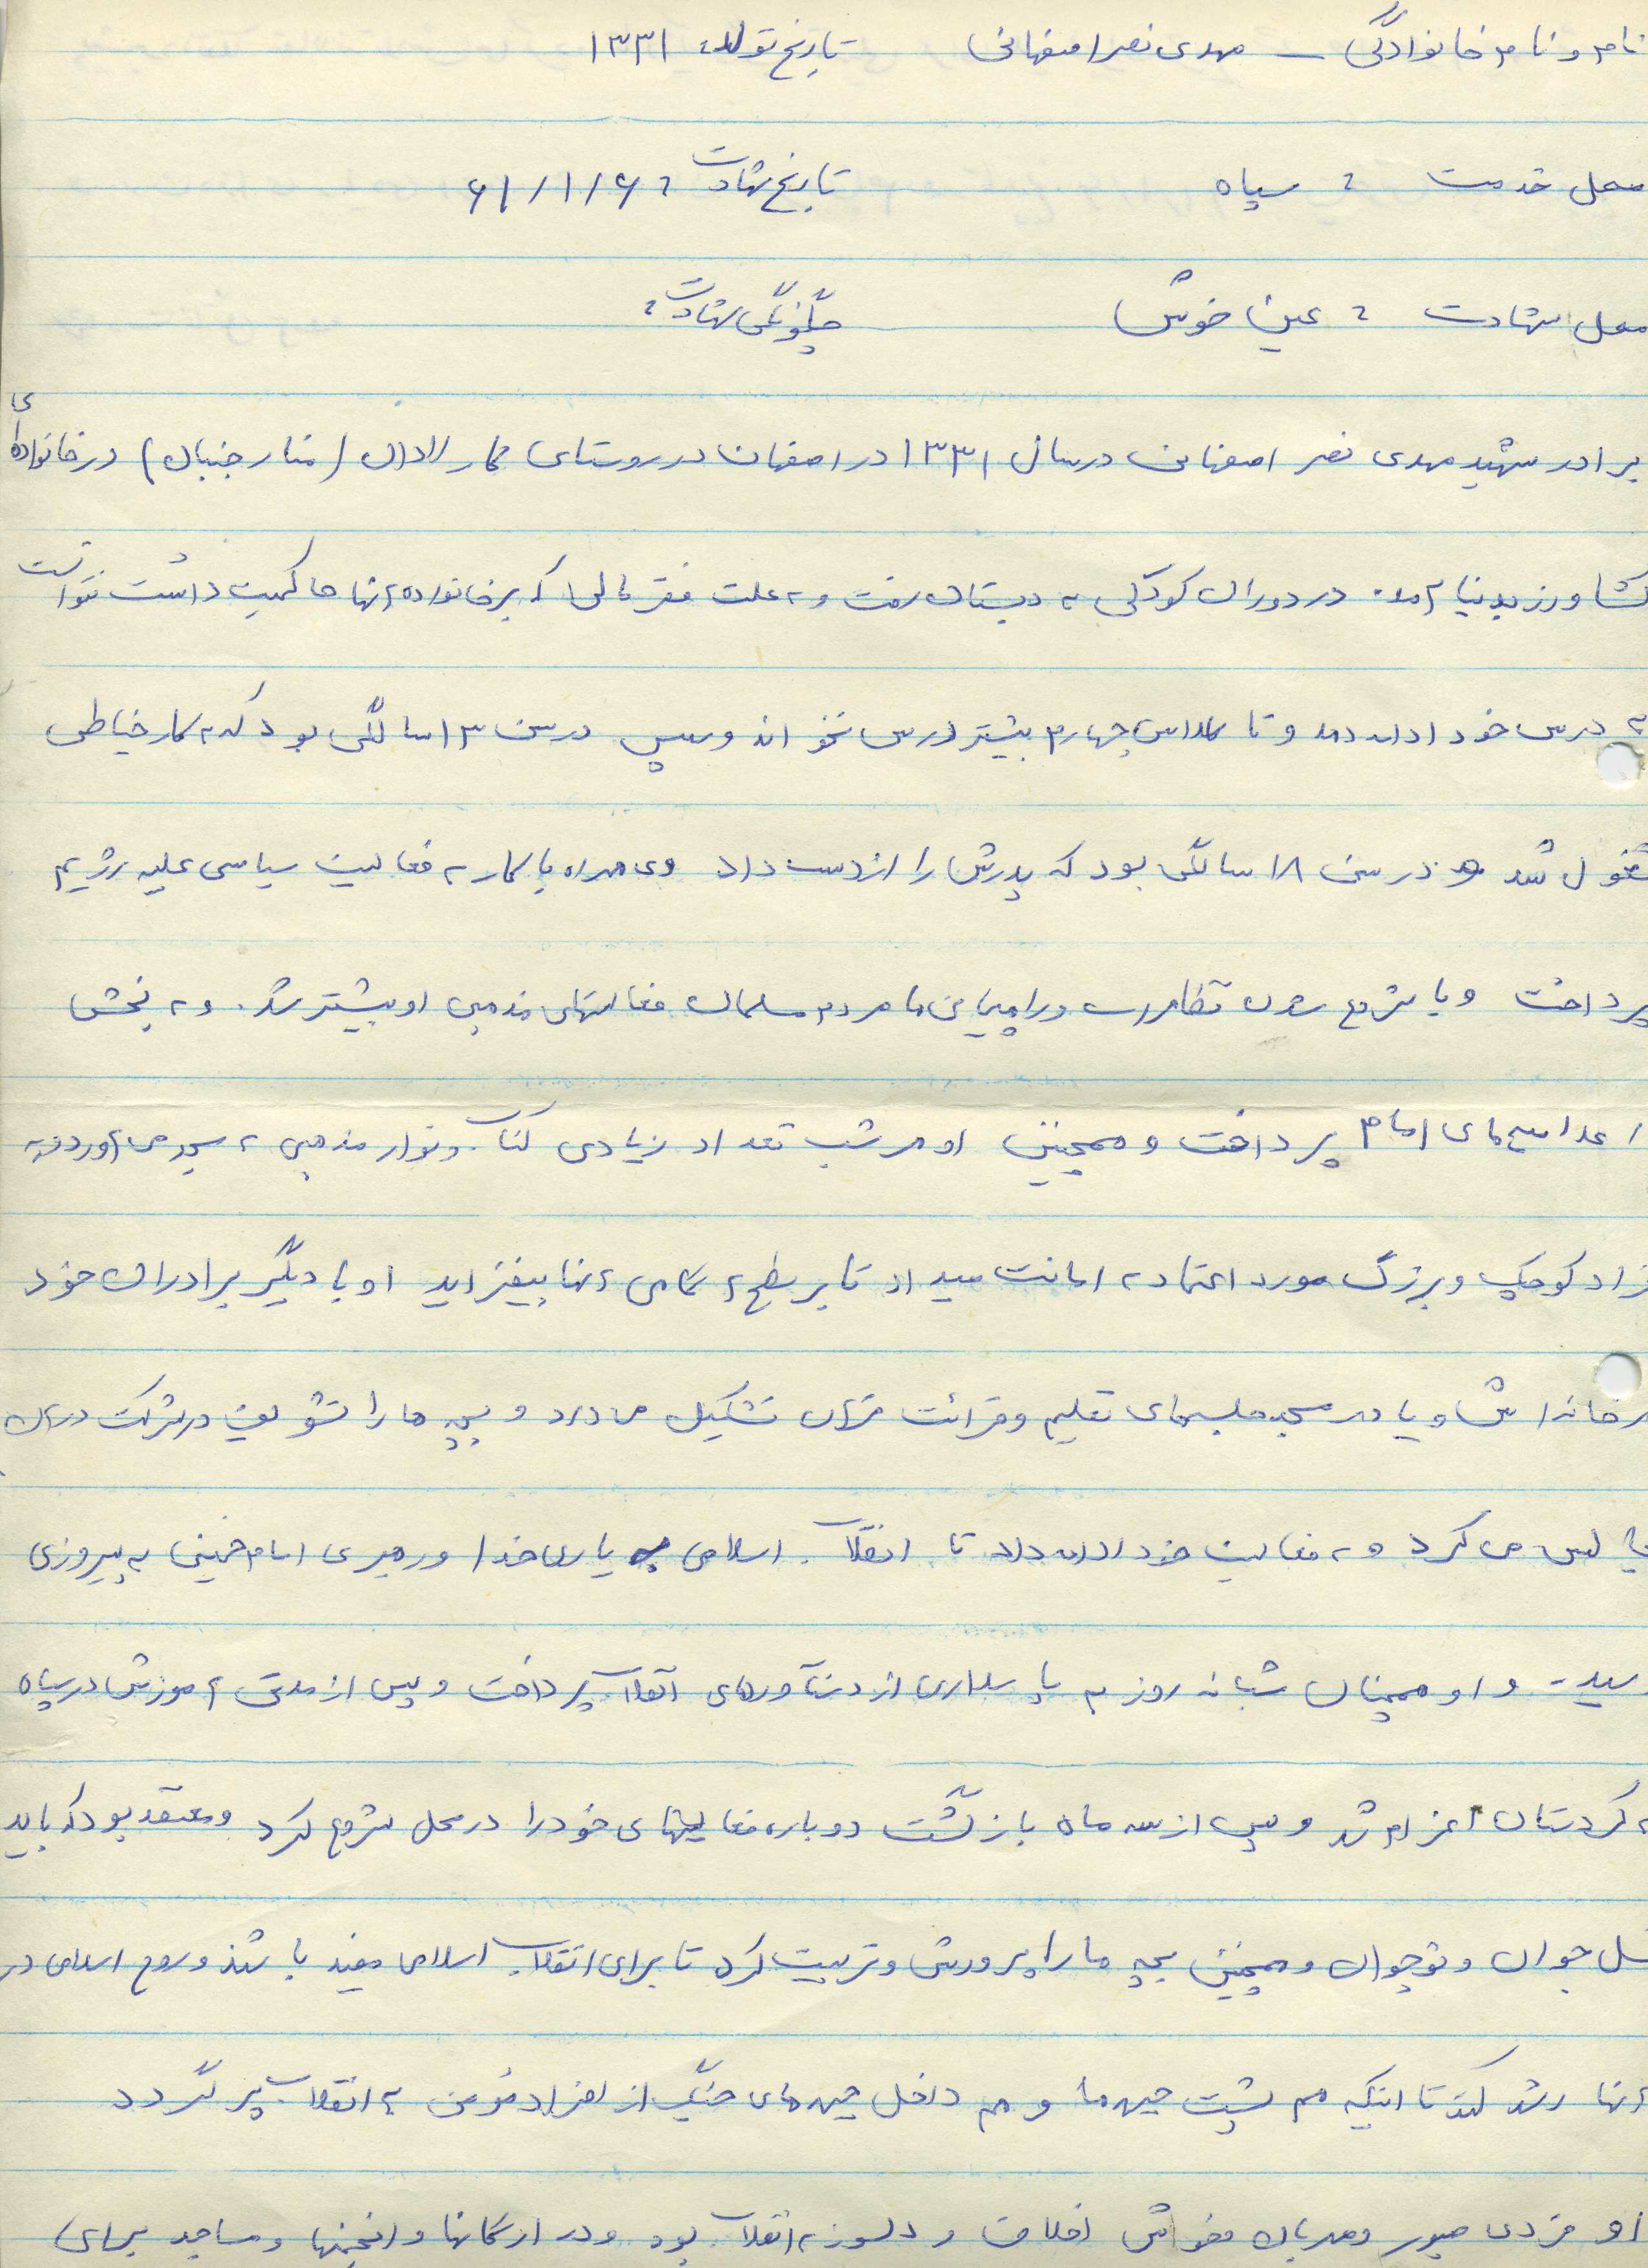 نام و نام خانوادگی - مهدی نصر اصفهانی تاریخ تولد: ۱۳۳۱
محل خدمت : سپاه تاریخ شهادت : ۶۱/۱/۶
محل شهادت : عین خوش چگونگی شهادت :
برادر شهید مهدی نصر اصفهانی در سال ۱۳۳۱ در اصفهان در روستای کارلادان (منار جنبان) در خانواده‌ای
کشاورز بدنیا آمد. در دوران کودکی به دبستان رفت و به علت فقر مالی که بر خانواده آنها حاکمیت داشت نتوانست
به درس خود ادامه دهد و تا کلاس چهارم بیشتر درس نخواند و سپس در سن ۱۳ سالگی بود که به کار خیاطی
مشغول شد در سن ۱۸ سالگی بود که پدرش را از دست داد وی همراه با کار به فعالیت سیاسی علیه رژیم
پرداخت و با شروع شدن تظاهرات و راهپیمایی‌ها مردم مسلمان فعالیتهای مذهبی او بیشتر شد. و به پخش
اعلامیه های امام پرداخت و همچنین او هر شب تعداد زیادی کتاب و نوار مذهبی به مسجد می آورد و به
افراد کوچک و بزرگ مورد اعتماد به امانت میداد تا بر سطح آگاهی آنها بیفزاید او با دیگر برادران خود
در خانه اش و یا در مسجد جلسه‌های تعلیم و قرائت قرآن تشکیل می داد و بچه ها را تشویق در شرکت در این
مجالس می کرد و به فعالیت خود ادامه داد تا انقلاب اسلامی به یاری خدا و رهبری امام خمینی به پیروزی
رسید و او همچنان شبانه روز به پاسداری از دستآوردهای انقلاب پرداخت و پس از مدتی آموزش در سپاه
به کردستان اعزام شد و پس از سه ماه بازگشت دوباره فعالیتهای خود را در محل شروع کرد و معتقد بود که باید
نسل جوان و نوجوان و همچنین بچه ها را پرورش و تربیت کرد تا برای انقلاب اسلامی مفید باشند و روح اسلامی در
آنها رشد کند تا اینکه هم پشت جبهه ها و هم داخل جبهه های جنگ از افراد مؤمن به انقلاب پر گردد
او فردی صبور و مهربان و خوش اخلاق و دلسوز به انقلاب بود و در ارگانها و انجمنها و مساجد برای